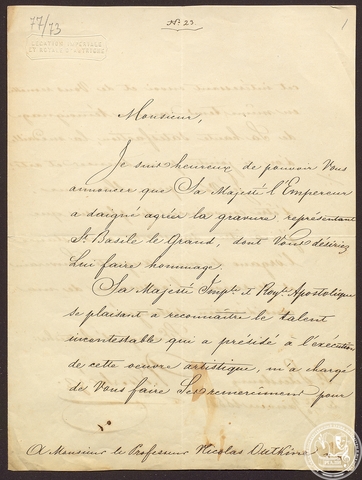 77/73
№ 23
1
Monsieur,
Je suis heureux de pouvoir Vous
annoncer que Sa Majesté l'Empereur
a daigné agréer la gravure représentant
St. Basile le Grand, dont Vous désiriez
Lui faire hommage.
Sa Majesté Imple. et Royle. Apostolique
se plaisant à reconnaître le talent
incontestable qui a présidé à l'exécution
de cette oeuvre artistique, m'a chargé
de Vous faire Ses remerciments pour
A Monsieur le Professeur Nicolas